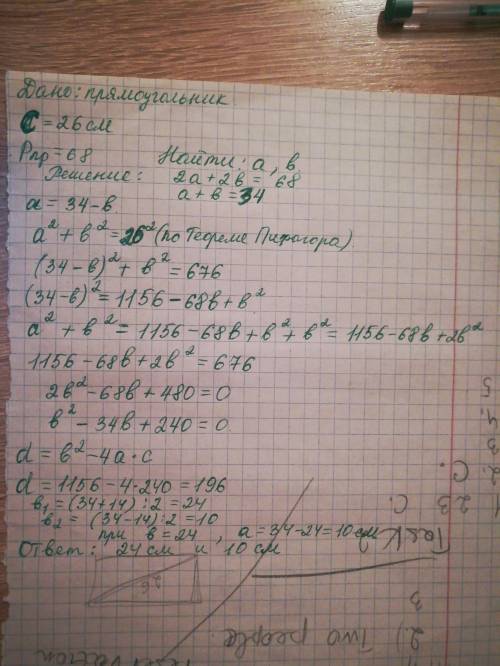 Дано: прямоугольник
C = 26 см
Pпр = 68 Найти: a, в
Решение: 2a + 2в = 68
a + в = 34
a = 34 - в
a² + в² = 26² (по Теореме Пифагора)
(34 - в)² + в² = 676
(34 - в)² = 1156 - 68в + в²
a² + в² = 1156 - 68в + в² + в² = 1156 - 68в + 2в²
1156 - 68в + 2в² = 676
2в² - 68в + 480 = 0
в² - 34в + 240 = 0
d = в² - 4a · c
d = 1156 - 4·240 = 196
в₁ = (34+14) : 2 = 24
в₂ = (34-14) : 2 = 10
при в = 24, a = 34 - 24 = 10 см
Ответ: 24 см и 10 см
26
Task 2
1. 23 C.
2. C.
3
4.
5
3
2) Two people